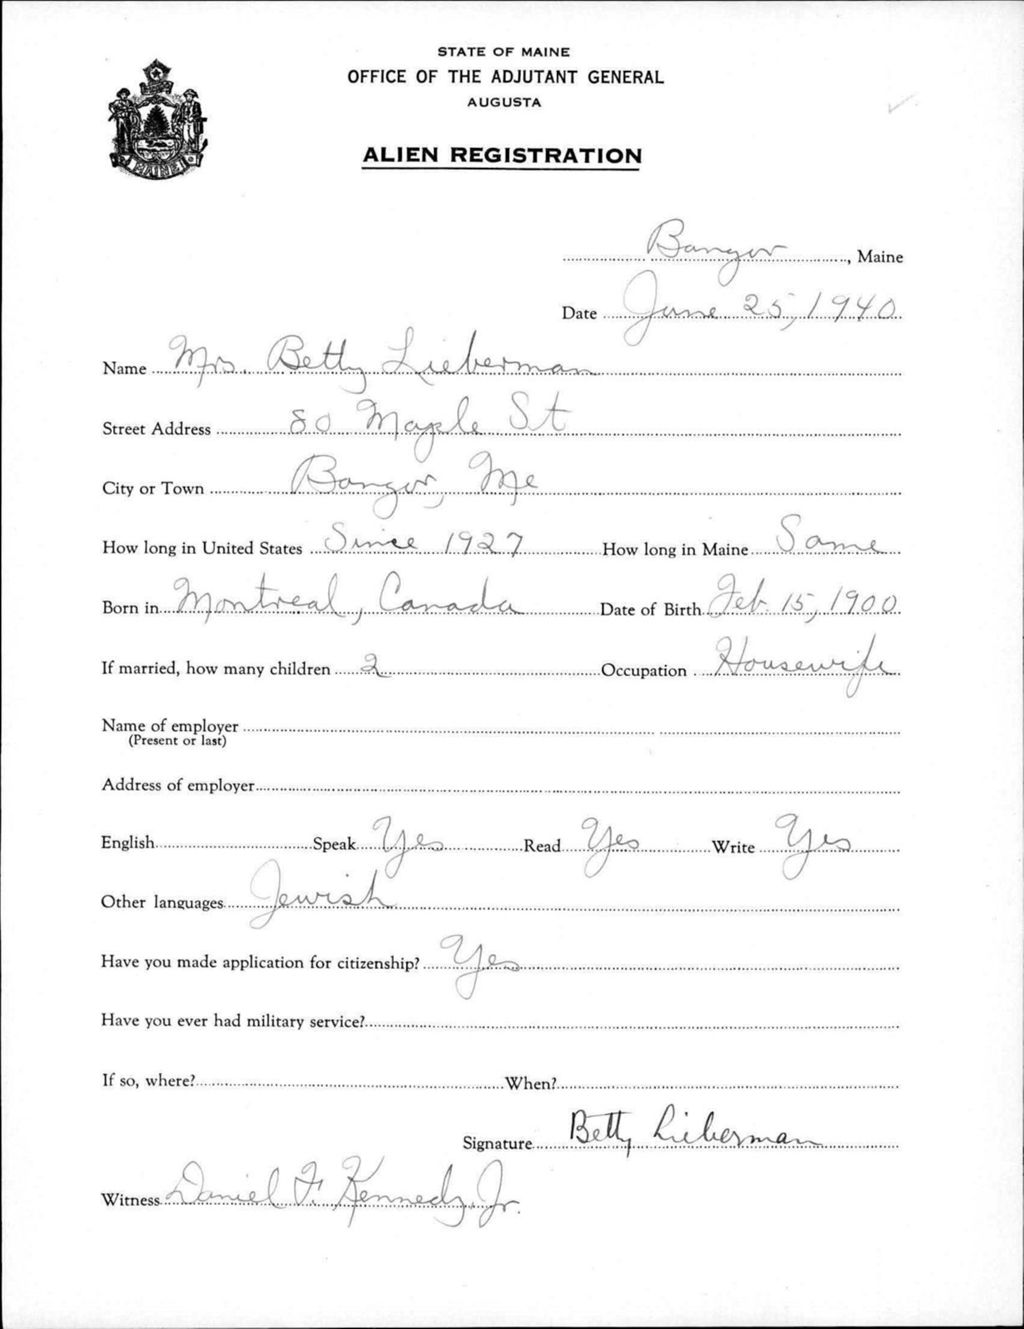 STATE OF MAINE
OFFICE OF THE ADJUTANT GENERAL
AUGUSTA
ALIEN REGISTRATION
MAINE
Bangor, Maine
Date June 25, 1940
Name Mrs. Betty Lieberman
Street Address 80 Maple St
City or Town Bangor, Me
How long in United States Since 1927 How long in Maine Same
Born in Montreal, Canada Date of Birth Feb. 15, 1900
If married, how many children 2 Occupation Housewife
Name of employer
(Present or last)
Address of employer
English Speak Yes Read Yes Write Yes
Other languages Jewish
Have you made application for citizenship? Yes
Have you ever had military service?
If so, where? When?
Signature Betty Lieberman
Witness Daniel F. Kennedy, Jr.